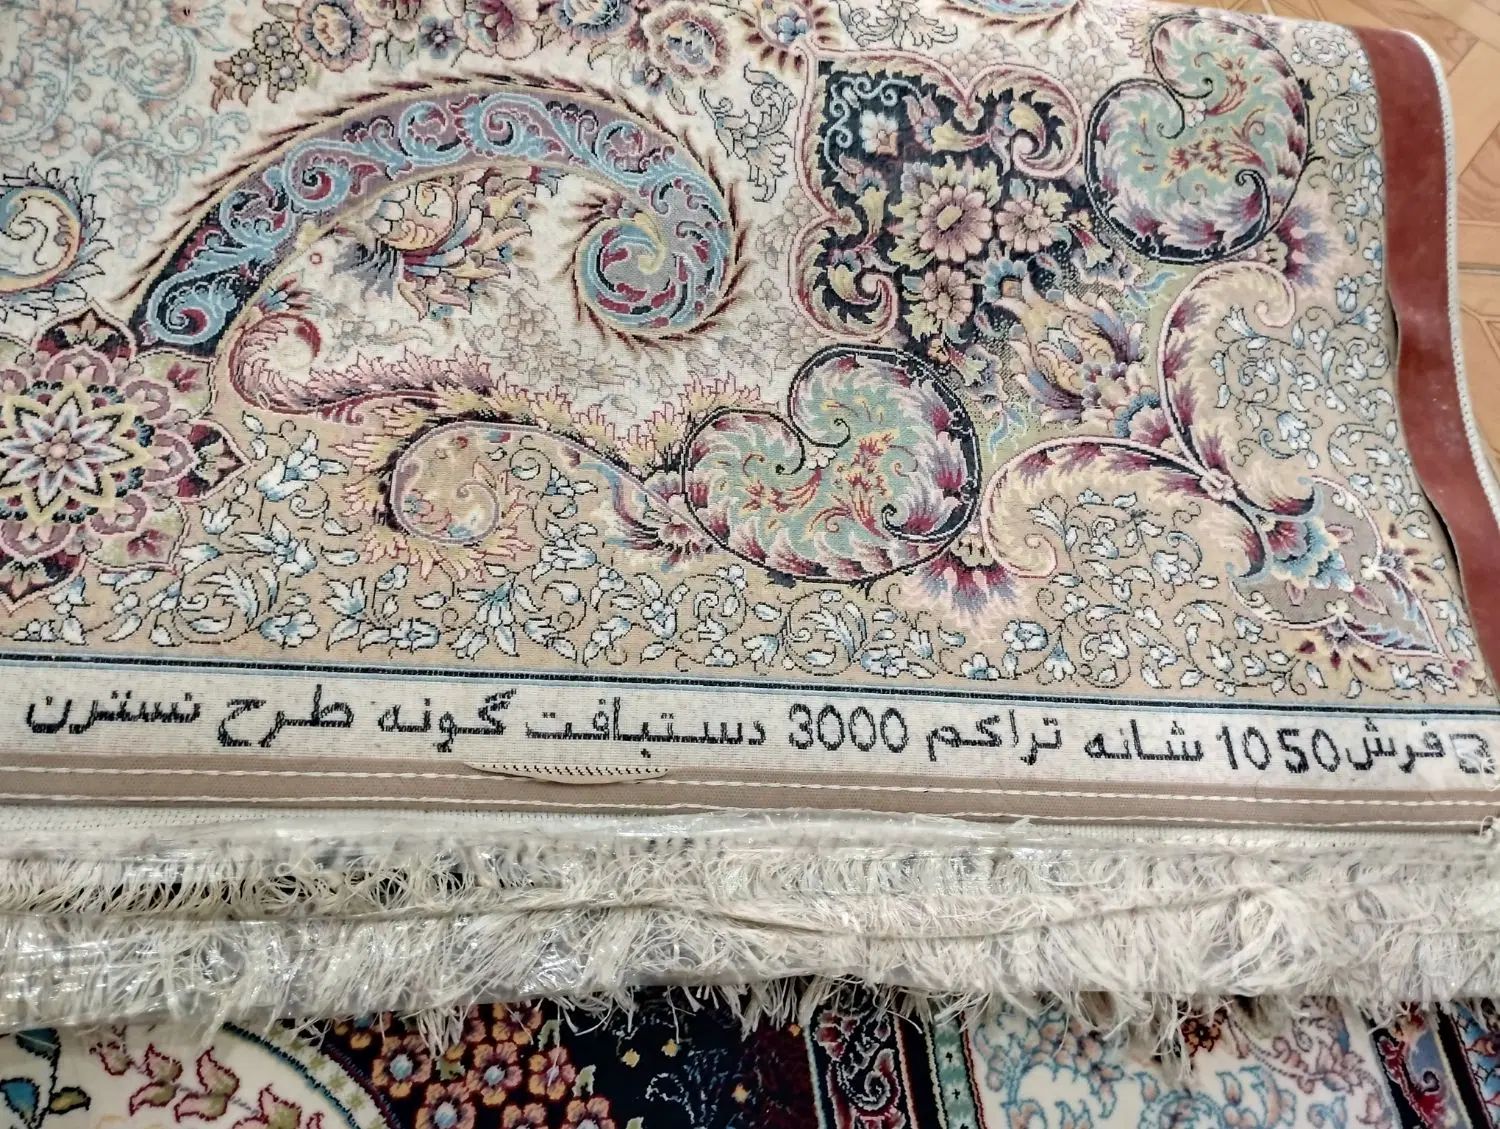 فرش 1050 شانه تراکم 3000 دستبافت گونه طرح نسترن